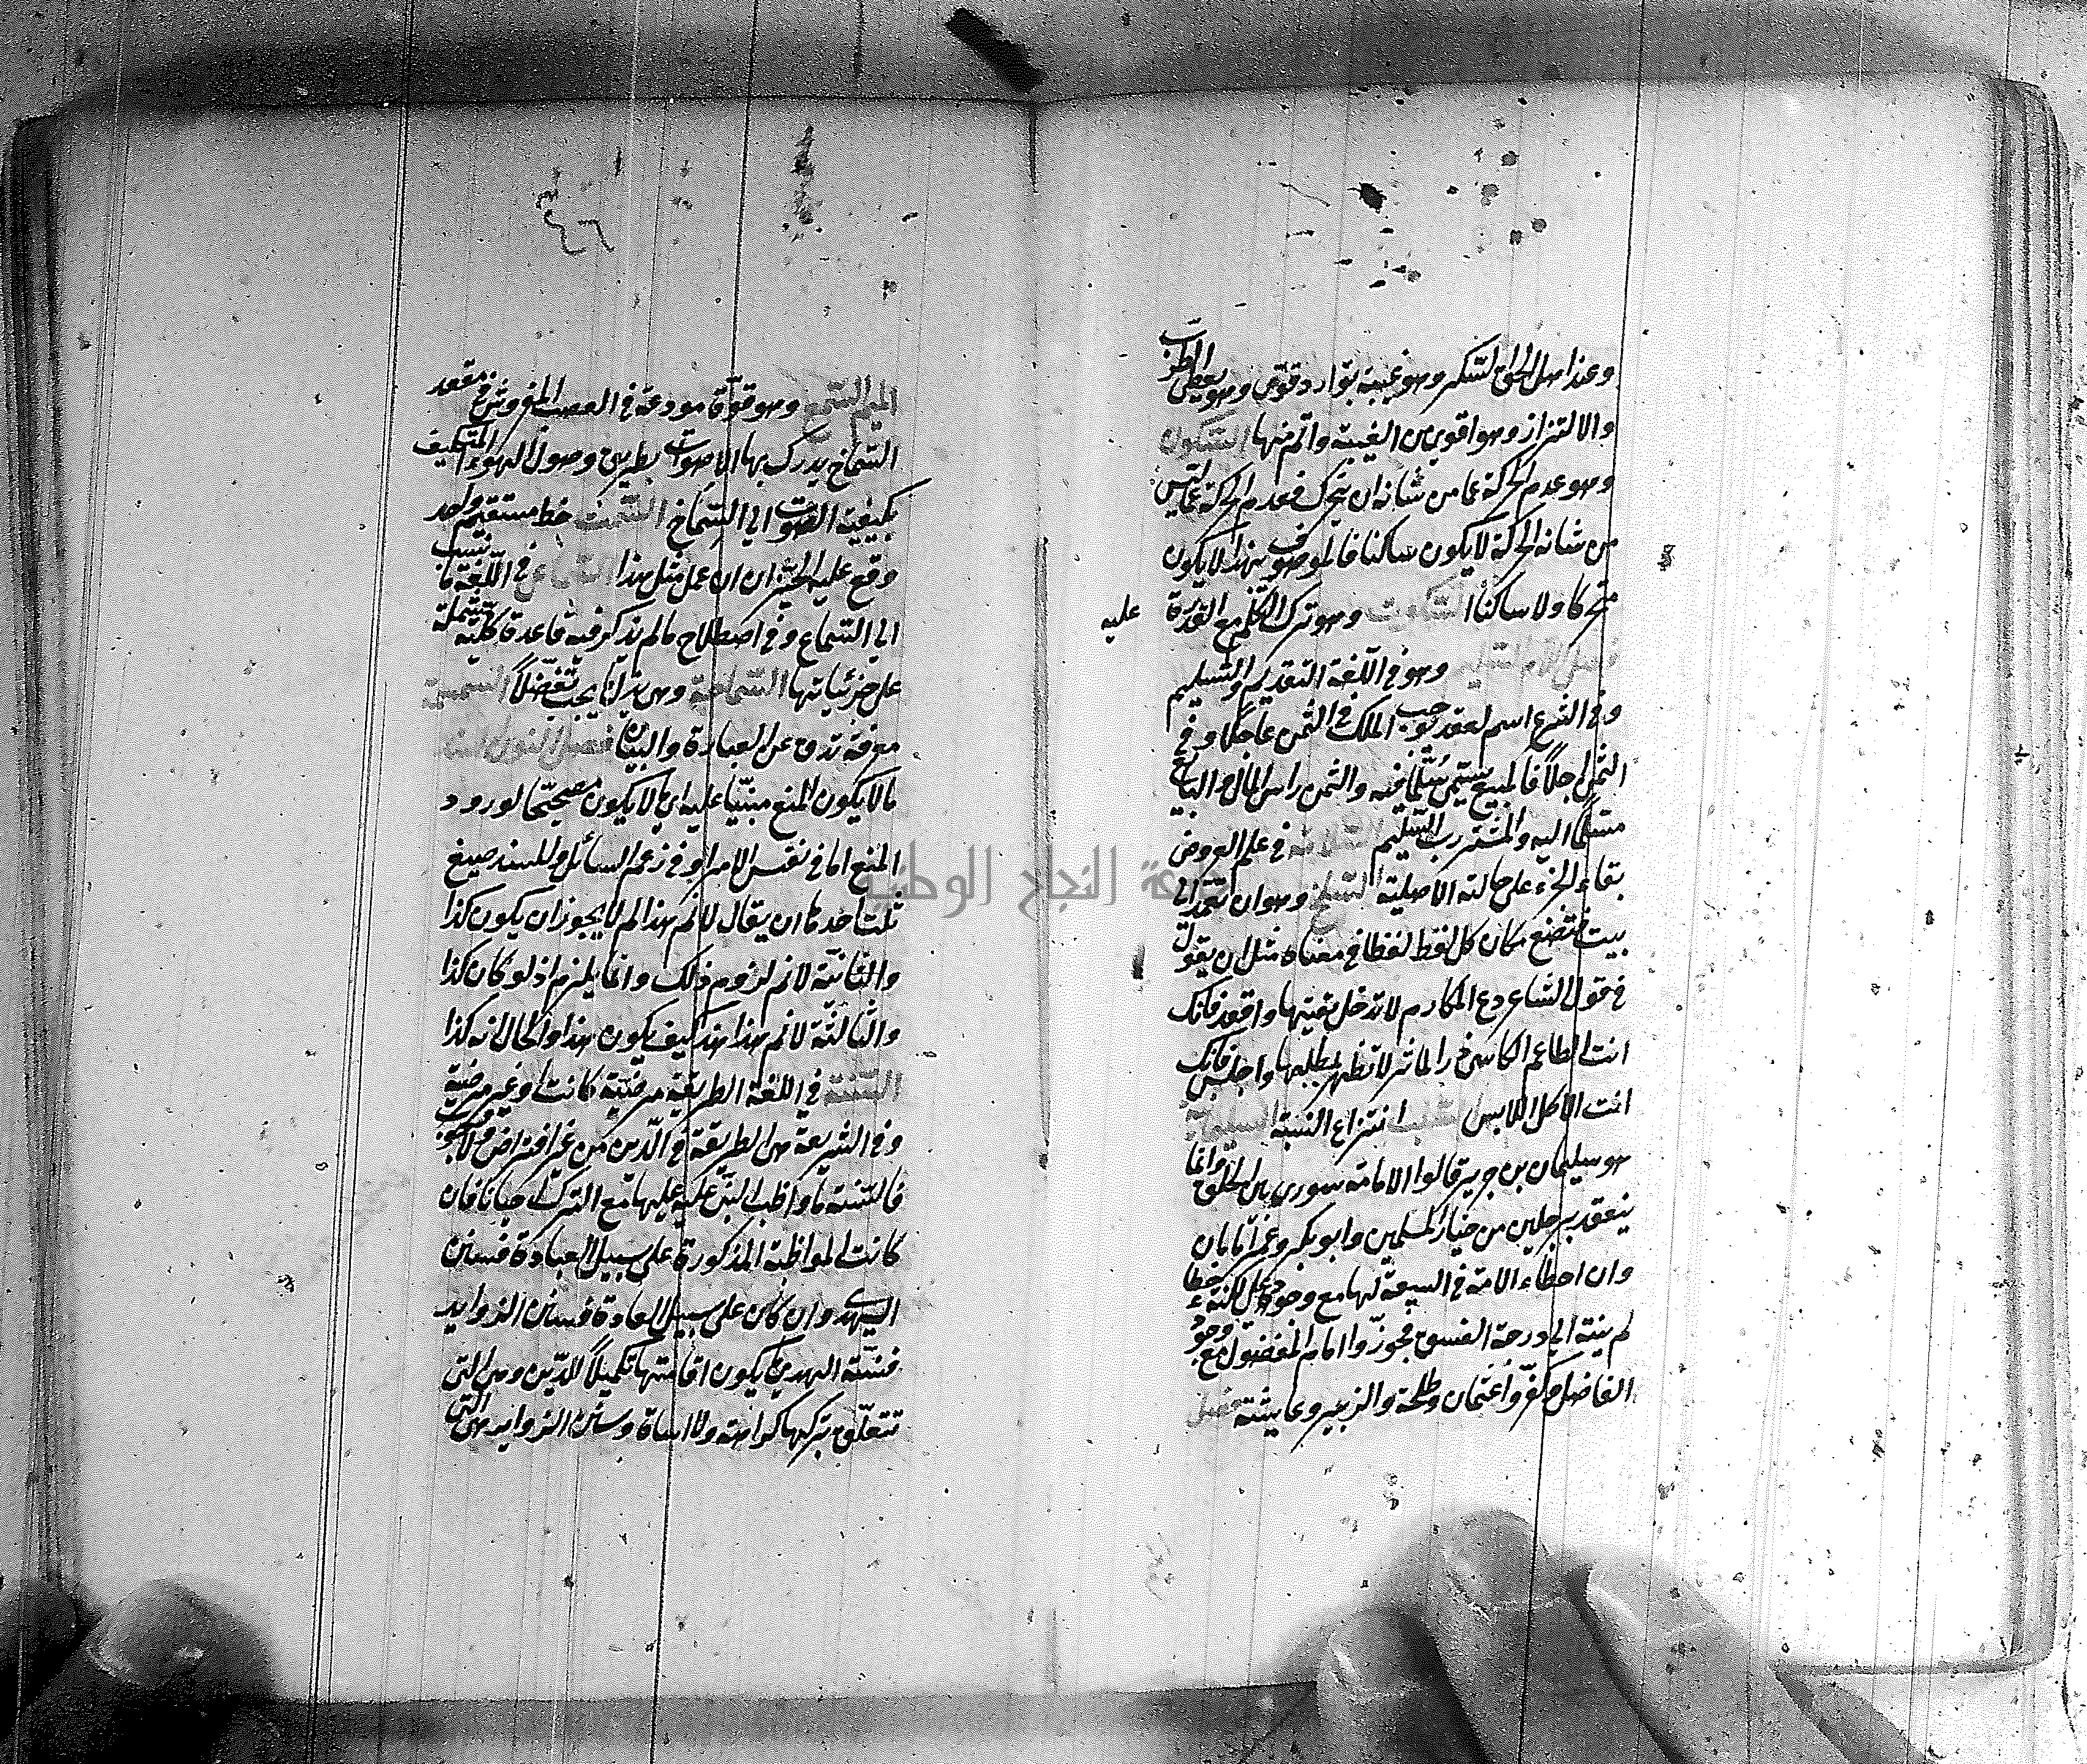 وعند اهل الحق السكر هو غيبة بوارد قوي وهو يعطي الطرب
والالتزاز وهو اقوى من الغيبة واتم منها السكون
وهو عدم الحركة عما من شانه ان يتحرك فعدم الحركة عما ليس
من شانه الحركة لا يكون ساكنا فالموصوف بهذا لا يكون
متحركا ولا ساكنا السكوت وهو ترك التكلم مع القدرة عليه
فصل اللام السلم وهو في اللغة التقديم والتسليم
وفي الشرع اسم لعقد يوجب الملك في الثمن عاجلا وفي
المثمن اجلا فالمبيع يسمى مسلما فيه والثمن راس المال والبايع
مسلما اليه والمشتري رب السلم السلامة في علم العروض
بقاء الجزء على حالته الاصلية السلخ وهو ان تعمد الى
بيت فتضع مكان كل لفظ لفظا في معناه مثل ان يقول
في قول الشاعر دع المكارم لا ترحل لبغيتها واقعد فانك
انت الطاعم الكاسي ذر الماثر لا تظهر لمطلبها واجلس فانك
انت الاكل اللابس السلب انتزاع النسبة السليمانية
هو سليمان بن جرير قالوا الامامة شورى بين الخلق وانما
ينعقد برجلين من خيار المسلمين وابو بكر وعمر امامان
وان اخطاء الامة في البيعة لهما مع وجود علي لكنه خطاء
لم ينته الى درجة الفسق فجوزوا امامة المفضول مع وجود
الفاضل وكفروا عثمان وطلحة والزبير وعايشة فصل
٤٦
الميم السمع وهو قوة مودعة في العصب المفروش في مقعد
الصماخ يدرك بها الاصوات بطريق وصول الهواء المتكيف
بكيفية الصوت الى الصماخ السمت خط مستقيم واحد
وقع عليه الحيزان ان عمل مثل هذا السماعي في اللغة ما نسب
الى السماع وفي اصطلاح ما لم يذكر فيه قاعدة كلية مشتملة
على جزئياتها السماحة وهي بذل ما لا يجب تفضلا السمسمة
معرفة تدق عن العبارة والبيان فصل النون السند
ما لا يكون المنع مبنيا عليه اي ما لا يكون مصححا لورود
المنع اما في نفس الامر او في زعم السائل وللسند صيغ
ثلث احدها ان يقال لا نم هذا لم لا يجوز ان يكون كذا
والثانية لا نم لزوم ذلك وانما يلزم اذ لو كان كذا
والثالثة لا نم هذا هذا كيف يكون هذا والحال انه كذا
السنة في اللغة الطريقة مرضية كانت او غير مرضية
وفي الشريعة هي الطريقة في الدين من غير افتراض ولا وجوب
فالسنة ما واظب النبي عليه عليها مع الترك احيانا فان
كانت المواظبة المذكورة على سبيل العبادة فسنن
الهدى وان كان على سبيل العادة فسنن الزوايد
فسنة الهدى ما يكون اقامتها تكميلا للدين وهي التي
تتعلق بتركها كراهة ولا اساة وسنن الزوايد هي التي